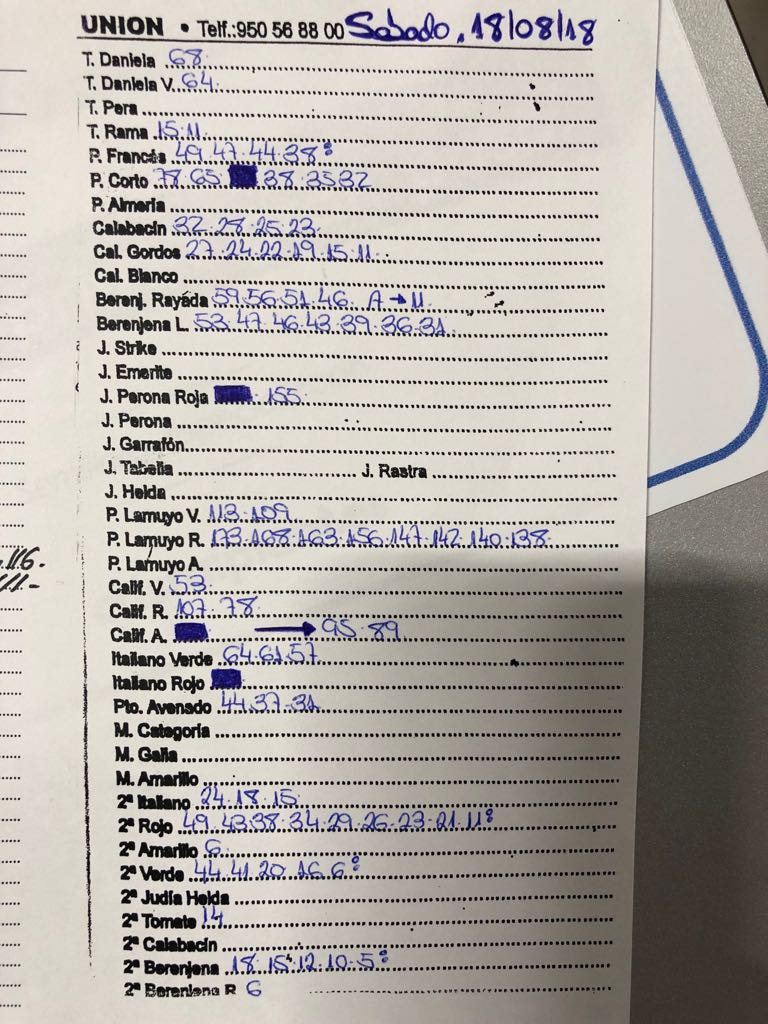 UNION • Telf.:950 56 88 00 Sabado, 18/08/18
T. Daniela 68
T. Daniela V. 64
T. Pera
T. Rama 15.11
P. Francés 49.47.44.38:
P. Corto 78.65 38.35 32
P. Almería
Calabacín 32.28.25.23
Cal. Gordos 27.24.22.19.15.11
Cal. Blanco
Berenj. Rayada 59.56.51.46. A→11
Berenjena L. 53.47.46.43.39.36.31
J. Strike
J. Emerite
J. Perona Roja 155
J. Perona
J. Garrafón
J. Tabella J. Rastra
J. Helda
P. Lamuyo V. 113.109
P. Lamuyo R. 173.168.163.156.147.142.140.138
P. Lamuyo A.
Calif. V. 53
Calif. R. 107.78
Calif. A. →95.89
Italiano Verde 64.61.57
Italiano Rojo
Pto. Avenado 44.37.31
M. Categoría
M. Galia
M. Amarillo
2ª Italiano 24.18.15
2ª Rojo 49.43.38.34.29.26.23.21.11:
2ª Amarillo 6
2ª Verde 44.41.20.16.6:
2ª Judía Helda
2ª Tomate 14
2ª Calabacín
2ª Berenjena 18.15.12.10.5:
2ª Berenjena R 6